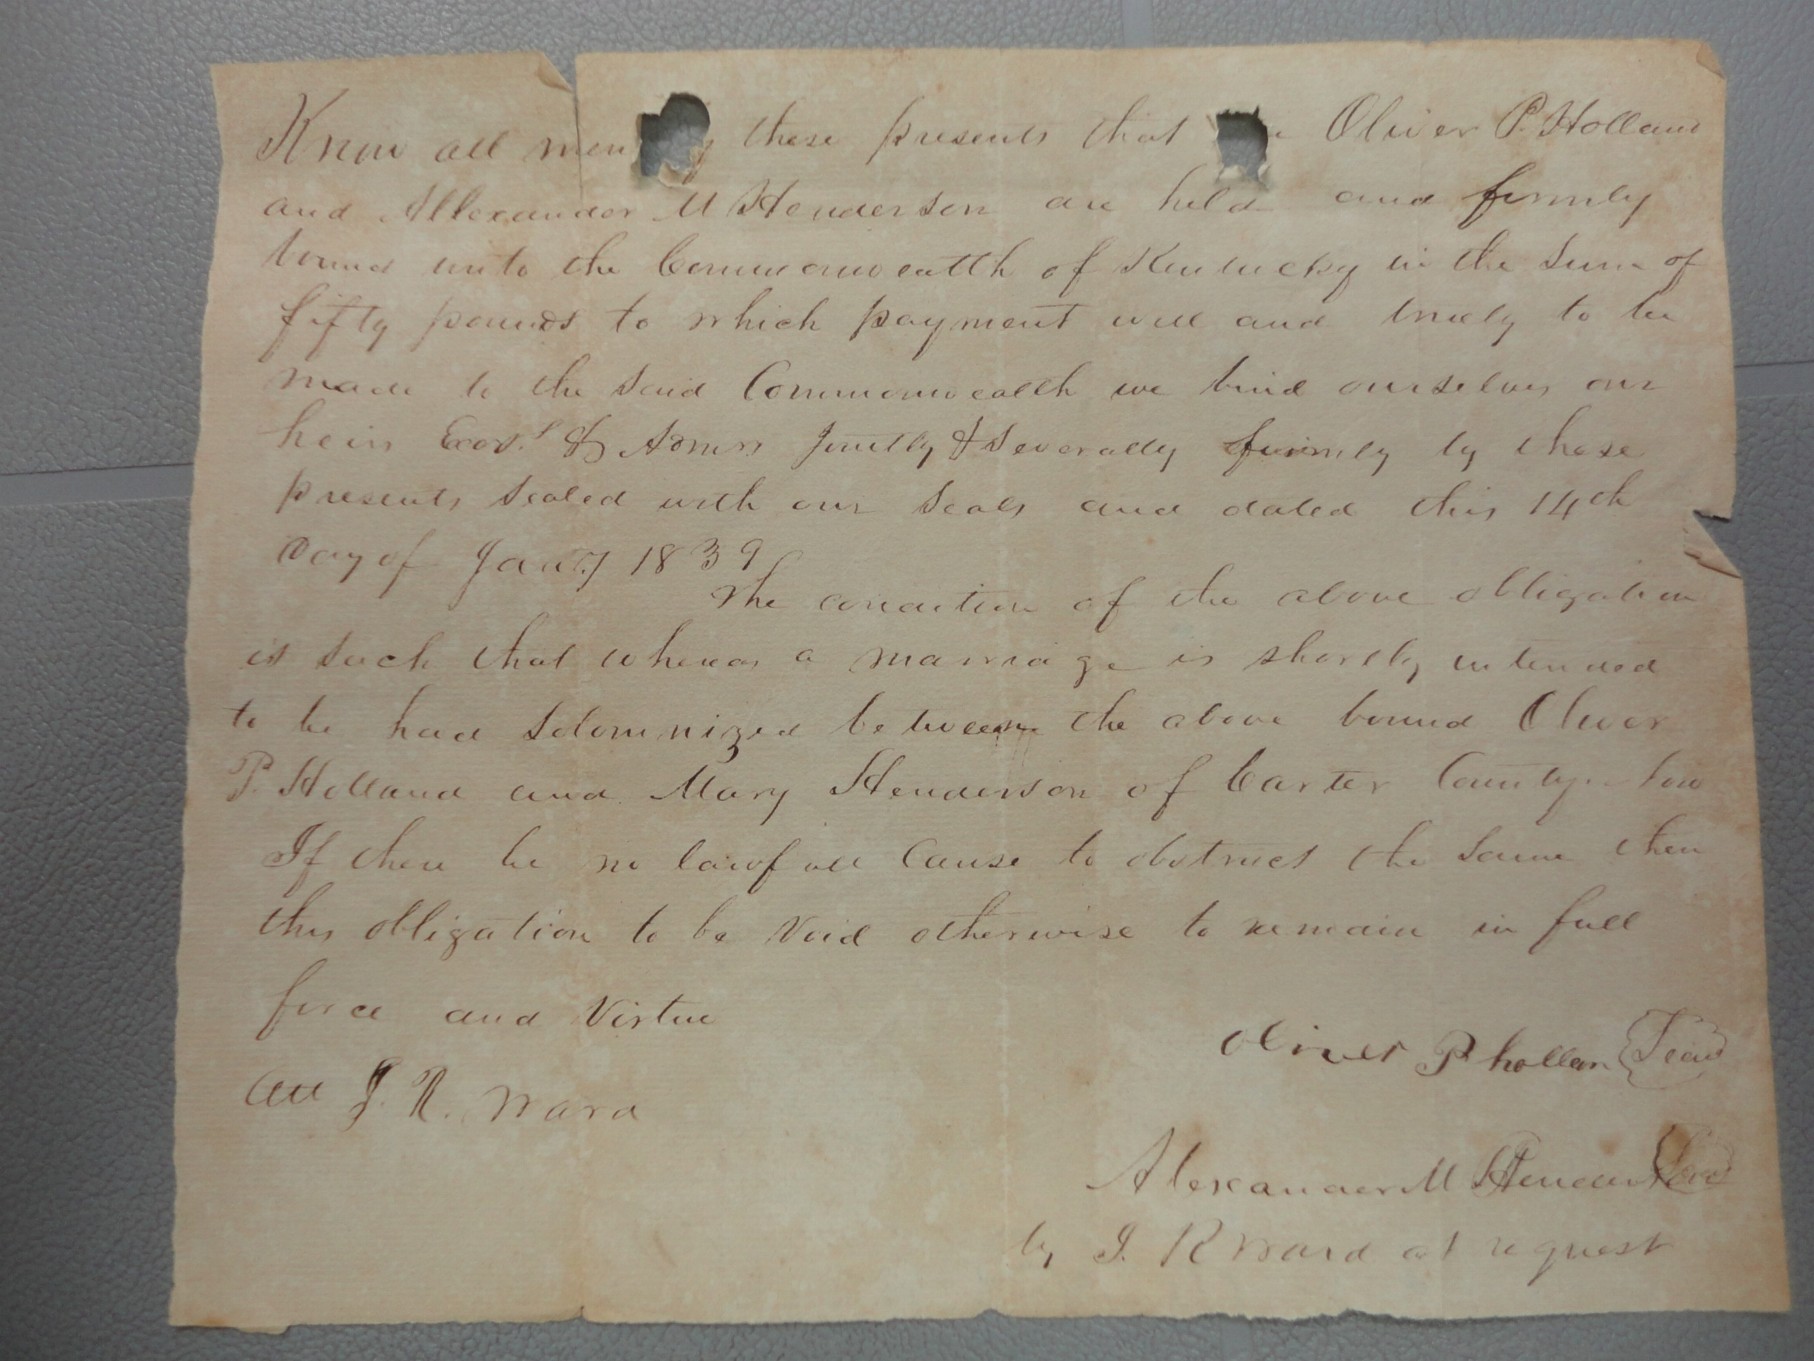 Know all men these presents that Oliver P. Holland
and Allexander M Henderson are held and firmly
bound unto the Commonwealth of Kentucky in the Sum of
fifty pounds to which payment well and truely to be
made to the Said Commonwealth we bind ourselves our
heirs Exors. & Admrs Jointly & Severally firmly by these
presents Sealed with our Seals and dated this 14th
Day of Jany 1839
The condition of the above obligation
is Such that whereas a marriage is shortly intended
to be had Solomnized between the above bound Oliver
P. Holland and Mary Henderson of Carter County. Now
If there be no lawfull Cause to obstruct the Same then
this obligation to be Void otherwise to remain in full
force and Virtue
Oliver P hollan Seal
Att J. R. Ward
Alexander M Henderson Seal
by J. R Ward at request